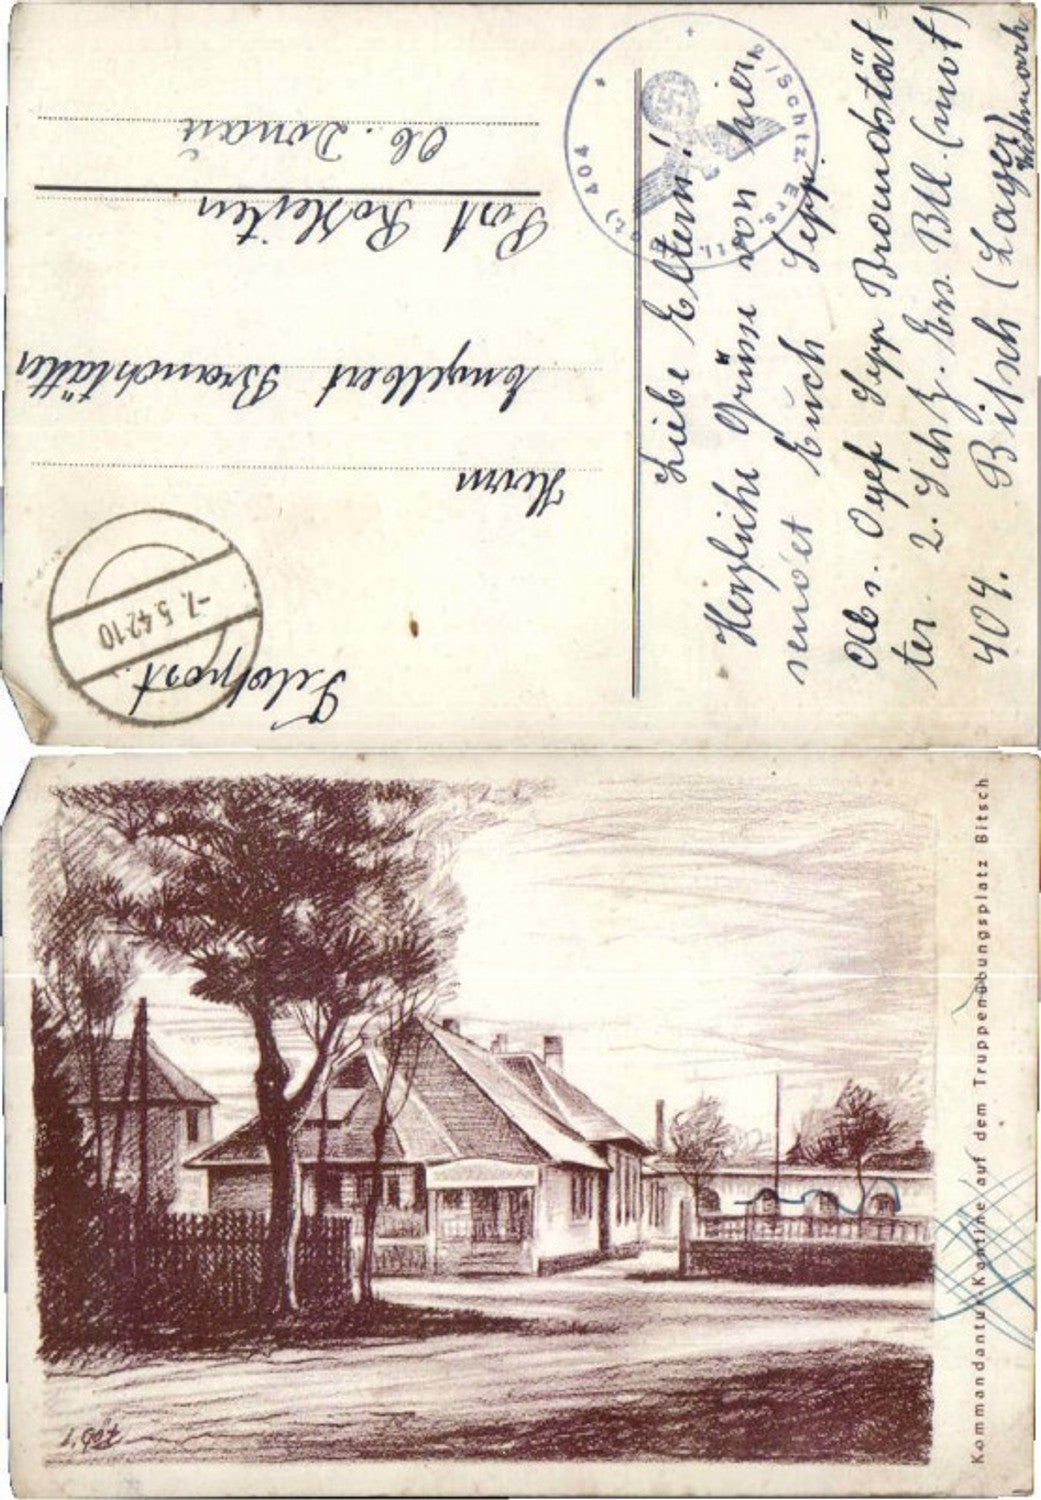 Feldpost
-7.5.42.10
Herrn
Engelbert Brandstätter
Post Roßleiten
Ob. Donau
2/Schtz. Ers.
404
Liebe Eltern!
Herzliche Grüsse von hier
sendet Euch Sepp.
Abs. Ogef Sepp Brandstät=
ter 2. Schtz. Ers. Btl. (mot)
404. Bitsch (Lager)
Westmark
Kommandantur-Kantine auf dem Truppenübungsplatz Bitsch